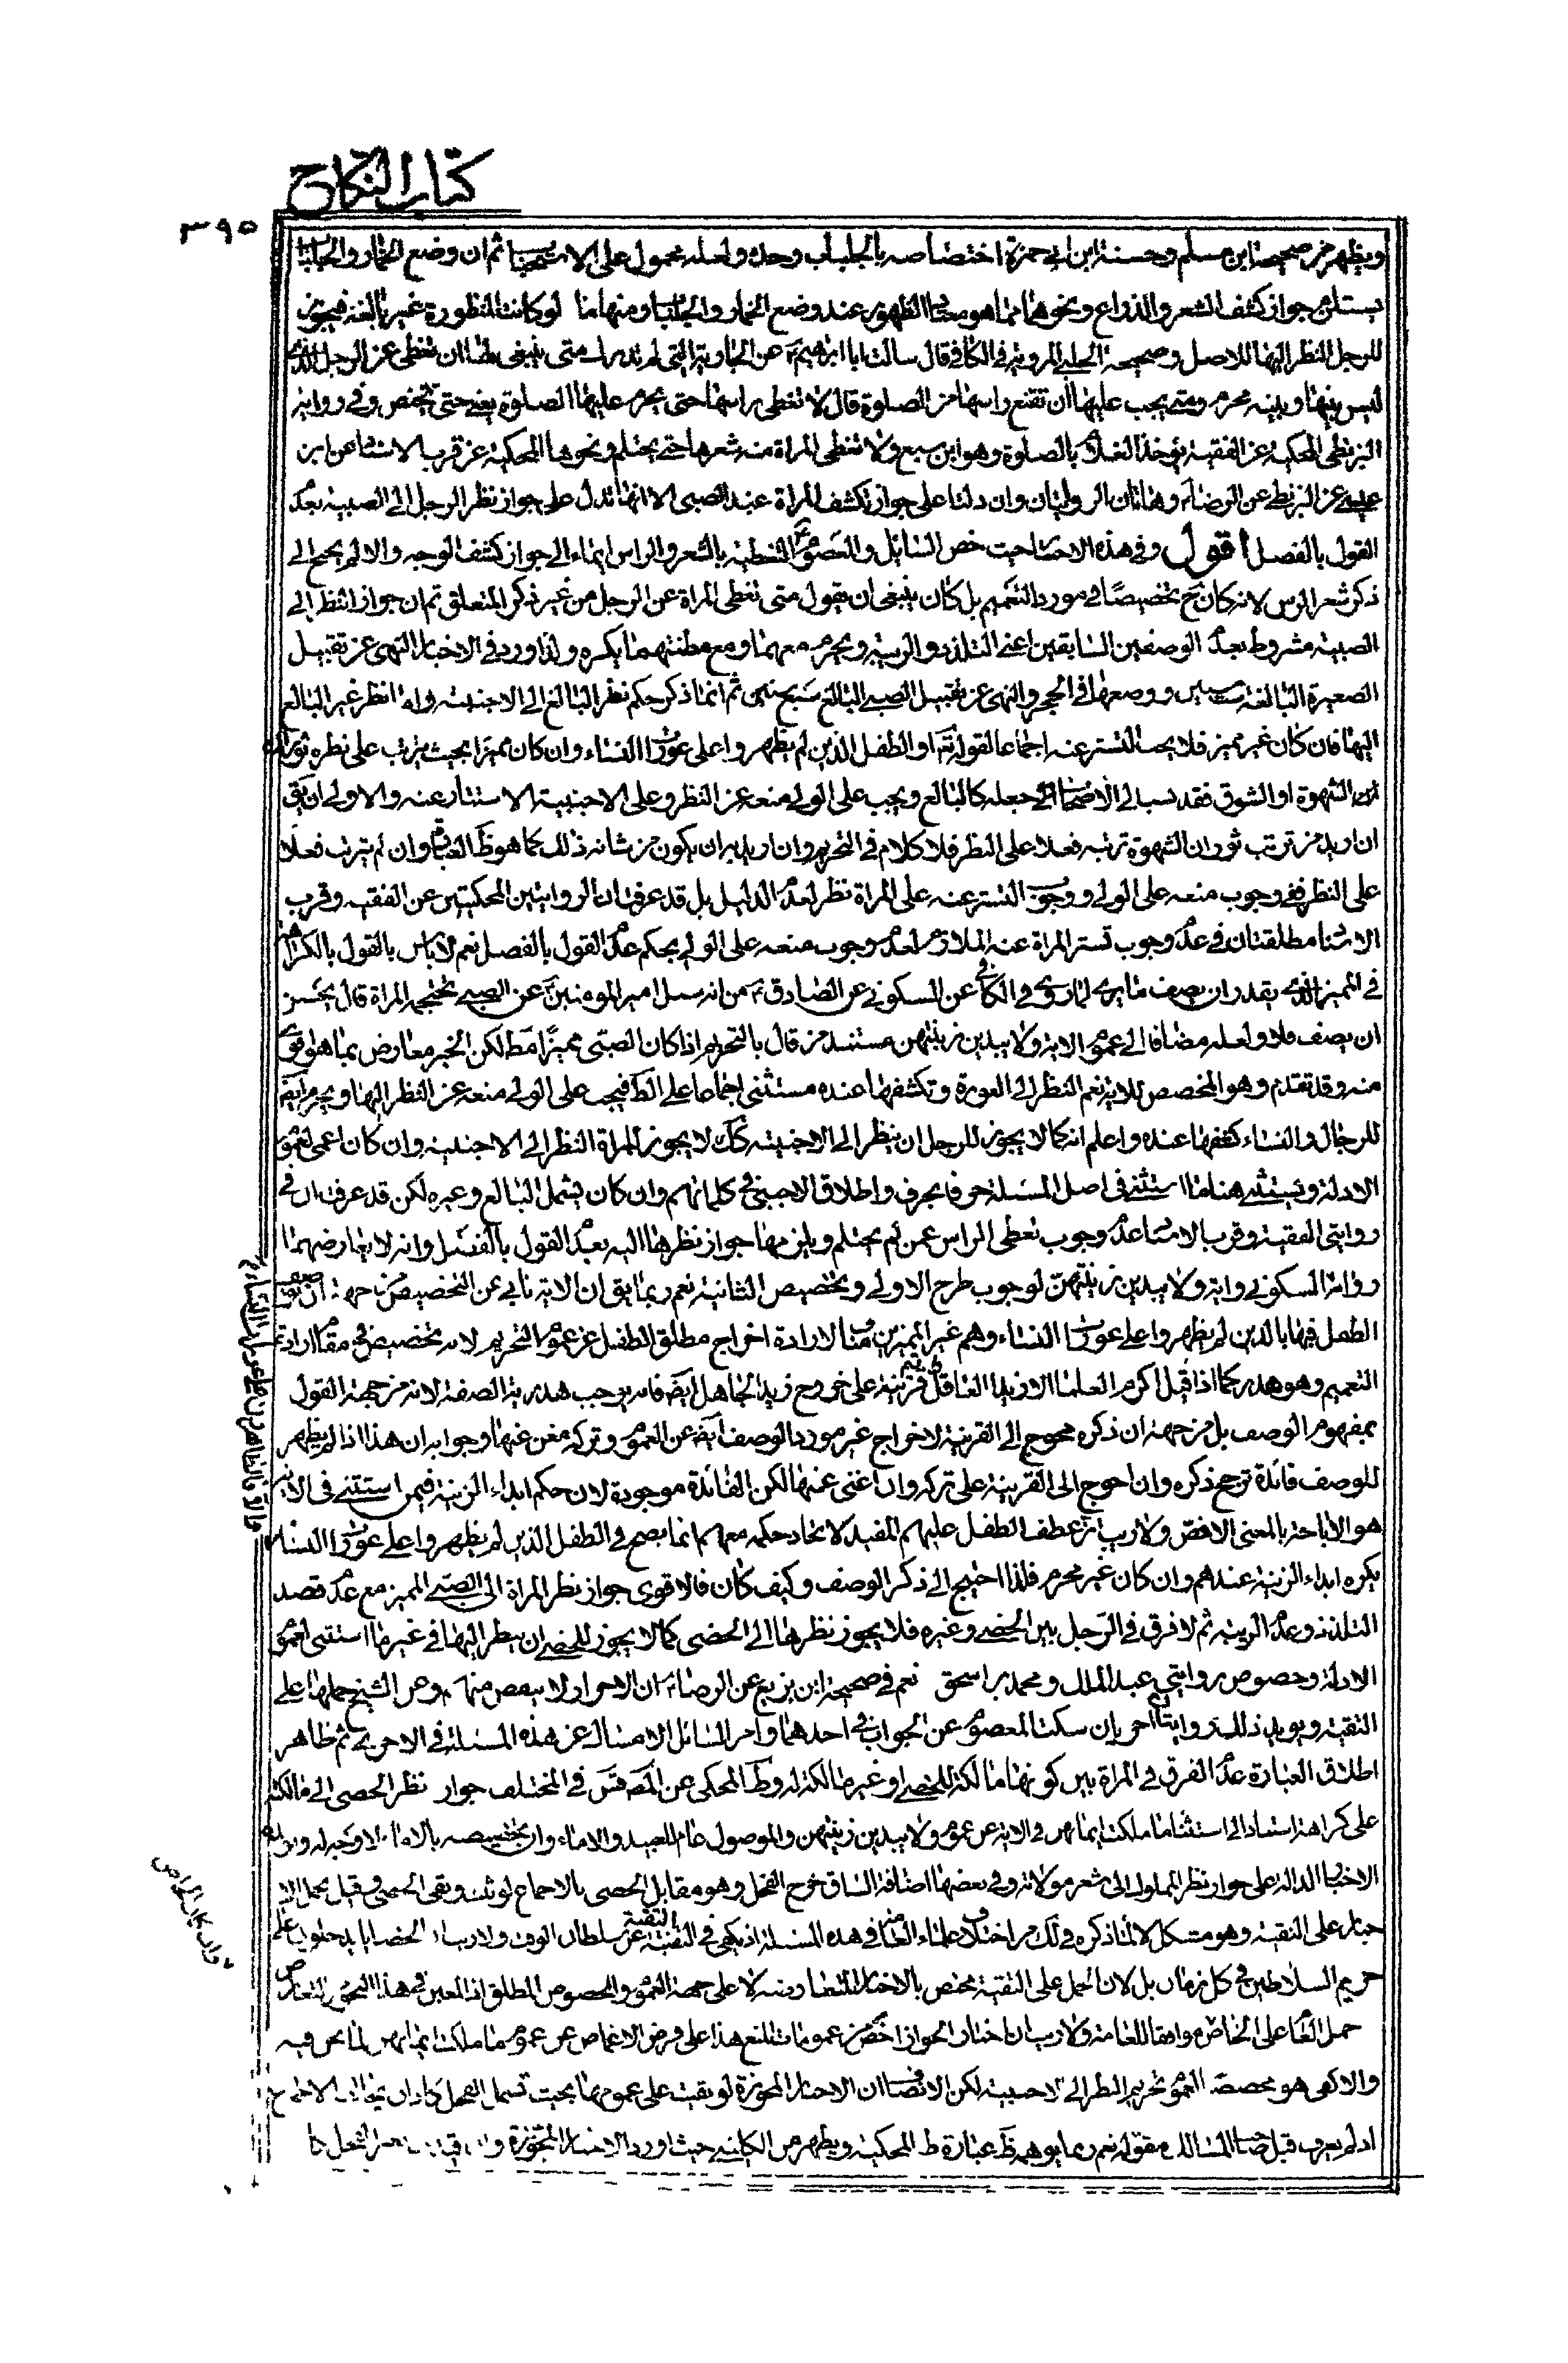 كتاب النكاح
٣٩٥
ويظهر من صحيحة ابن مسلم وحسنة ابن ابي حمزة اختصاصه بالجلباب وحده ولعله محمول على الاستحباب ثم ان وضع الخمار والجلباب
يستلزم جواز كشف الشعر والذراع ونحوهما مما هو معتاد الظهور عند وضع الخمار والجلباب ومنها ما لو كانت المنظورة غير بالغة فيجوز
للرجل النظر اليها للاصل وصحيحة الحلبي المروية في الكافي قال سالت ابا ابرهيم ع عن الجارية التي لم تدرك متى ينبغي لها ان تغطي عن الرجل الذي
ليس بينها وبينه محرم ومتى يجب عليها ان تقنع راسها من الصلوة قال لا تغطي راسها حتى يحرم عليها الصلوة يعني حتى تحيض وفي رواية
البزنطي المحكية عن الفقيه يؤخذ الغلام بالصلوة وهو ابن سبع ولا تغطي المراة منه شعرها حتى يحتلم ونحوها المحكية عن قرب الاسناد عن ابن
عيسى عن البزنطي عن الرضا ع وهاتان الروايتان وان دلتا على جواز تكشف المراة عند الصبي الا انها تدل على جواز نظر الرجل الى الصبية بعدم
القول بالفصل اقول وفي هذه الاخبار حيث خص السائل والمعصوم التغطية بالشعر والراس ايماء الى جواز كشف الوجه والا لم يحتج الى
ذكر شعر الراس لانه كان ح تخصيصا في مورد التعميم بل كان ينبغي ان يقول متى تغطي المراة عن الرجل من غير ذكر المتعلق ثم ان جواز النظر الى
الصبية مشروط بعدم الوصفين السابقين اعني التلذذ والريبة ويحرم معهما ومع مظنتهما يكره ولذا ورد في الاخبار النهي عن تقبيل
الصغيرة البالغة ست سنين ووضعها في الحجر والنهي عن تقبيل الصبي البالغ سبع سنين ثم انما ذكر حكم نظر البالغ الى الاجنبية واما نظر غير البالغ
اليها فان كان غير مميز فلا يجب التستر عنه اجماعا لقوله تع او الطفل الذين لم يظهروا على عورات النساء وان كان مميزا بحيث يترتب على نظره ثوران
الشهوة او الشوق فقد نسب الى الاصحاب جعله كالبالغ ويجب على الولي منعه عن النظر وعلى الاجنبية الاستتار عنه والاولى ان يقال
ان اريد من ترتب ثوران الشهوة ترتبه فعلا على النظر فلا كلام في التحريم وان اريد به ان يكون من شانه ذلك كما هو ظ العبارة وان لم يترتب فعلا
على النظر ففي وجوب منعه على الولي ووجوب التستر عنه على المراة نظر لعدم الدليل بل قد عرفت ان الروايتين المحكيتين عن الفقيه وقرب
الاسناد مطلقتان في عدم وجوب تستر المراة عنه الملازم لعدم وجوب منعه على الولي بحكم عدم القول بالفصل نعم لا باس بالقول بالكراهة
في المميز الذي يقدر ان يصف ما يرى لما روي في الكافي عن السكوني عن الصادق ع من انه سئل امير المومنين ع عن الصبي يحجم المراة قال ان كان يحسن
ان يصف فلا ولعله مضافا الى عموم الاية ولا يبدين زينتهن مستند من قال بالتحريم اذا كان الصبي مميزا مط لكن الخبر معارض بما هو اقوى
منه وقد تقدم وهو المخصص للاية نعم النظر الى العورة وتكشفها عنده مستثنى اجماعا على الظ فيجب على الولي منعه عن النظر اليها ويحرم ايضا
للرجال والنساء كشفها عنده واعلم انه كما لا يجوز للرجل ان ينظر الى الاجنبية كك لا يجوز للمراة النظر الى الاجنبي وان كان اعمى لعموم
الادلة ويستثنى هنا ما استثنى في اصل المسئلة حرفا بحرف واطلاق الاجنبي في كلماتهم وان كان يشمل البالغ وغيره لكن قد عرفت ان في
روايتي الفقيه وقرب الاسناد عدم وجوب تغطي الراس عمن لم يحتلم ويلزمها جواز نظرها اليه بعدم القول بالفصل وانه لا يعارضهما
رواية السكوني واية ولا يبدين زينتهن لوجوب طرح الاولى وتخصيص الثانية نعم ربما يق ان الاية تابى عن التخصيص من جهة ان توصيف
الطفل فيها بالذين لم يظهروا على عورات النساء وهم غير المميزين مناف لارادة اخراج مطلق الطفل عن عموم التحريم لانه تخصيص في مقام ارادة
التعميم وهو هدر كما اذا قيل اكرم العلماء الا زيدا العاقل ثم قام قرينة على خروج زيد الجاهل ايضا فانه يوجب هدرية الصفة لا من جهة القول
بمفهوم الوصف بل من جهة ان ذكره محوج الى القرينة لاخراج غير مورد الوصف ايضا عن العموم وتركه مغن عنها وجوابه ان هذا اذا لم يظهر
للوصف فائدة ترجح ذكره وان احوج الى القرينة على تركه وان اغنى عنها لكن الفائدة موجودة لان حكم ابداء الزينة فيمن استثنى في الاية
هو الاباحة بالمعنى الاخص ولا ريب ان عطف الطفل عليهم المفيد لاتحاد حكمه معهم انما يصح في الطفل الذين لم يظهروا على عورات النساء
يكره ابداء الزينة عندهم وان كان غير محرم فلذا احتيج الى ذكر الوصف وكيف كان فالاقوى جواز نظر المراة الى الصبي المميز مع عدم قصد
التلذذ وعدم الريبة ثم لا فرق في الرجل بين الخصي وغيره فلا يجوز نظرها الى الخصي كما لا يجوز للخصي ان ينظر اليها في غير ما استثنى لعموم
الادلة وخصوص روايتي عبد الملك ومحمد بن اسحق نعم في صحيحة ابن بزيع عن الرضا ع ان الاحرار لا يتقنعن منهم وعن الشيخ حملها على
التقية ويؤيد ذلك روايتان اخريان سكت المعصوم عن الجواب في احدهما وامر السائل الامساك عن هذه المسئلة في الاخرى ثم ظاهر
اطلاق العبارة عدم الفرق في المراة بين كونها مالكة للخصي او غير مالكة له وظ المحكي عن المص قدس في المختلف جواز نظر الخصي الى مالكته
على كراهة استنادا الى استثناء ما ملكت ايمانهن في الاية عن عموم ولا يبدين زينتهن والموصول عام للعبيد والاماء وان تخصيصه بالاماء لا وجه له
الاخبار الدالة على جواز نظر المملوك الى شعر مولاته وفي بعضها اضافة الساق خرج الفحل وهو مقابل الخصي بالاجماع لو ثبت وبقي الخصي وقيل بحمل الا
خبار على التقية وهو مشكل لا لما ذكره في لك من اختلاف علماء العامة في هذه المسئلة اذ يكفي في التقية عن سلطان الوقت ولا ريب ان الخصيان يدخلون على
حريم السلاطين في كل زمان بل لان الحمل على التقية مختص بالاخبار المتعارضة لا على جهة العموم والخصوص المطلق اذ المتعين في هذا النحو من التعارض
حمل العام على الخاص موافقا للعامة ولا ريب ان اخبار الجواز اخص من عمومات المنع هذا على فرض الاغماض عن عموم ما ملكت ايمانهن لما نحن فيه
والا كفى هو مخصصا لعموم تحريم النظر الى الاجنبية لكن الانصاف ان الاخبار المجوزة لو بقيت على عمومها بحيث تشمل الفحل